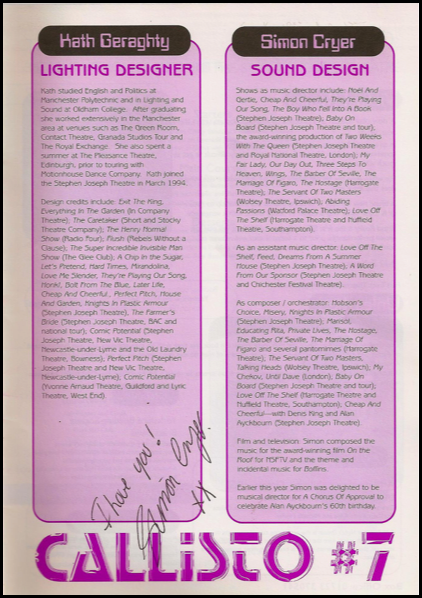 Kath Geraghty
LIGHTING DESIGNER
Kath studied English and Politics at
Manchester Polytechnic and in Lighting and
Sound at Oldham College. After graduating
she worked extensively in the Manchester
area at venues such as The Green Room,
Contact Theatre, Granada Studios Tour and
The Royal Exchange. She also spent a
summer at The Pleasance Theatre,
Edinburgh, prior to touring with
Motionhouse Dance Company. Kath joined
the Stephen Joseph Theatre in March 1994.
Design credits include: Exit The King,
Everything In The Garden (In Company
Theatre); The Caretaker (Short and Stocky
Theatre Company); The Henry Normal
Show (Radio Four); Flush (Rebels Without a
Clause); The Super Incredible Invisible Man
Show (The Glee Club); A Chip in the Sugar,
Let's Pretend, Hard Times, Mirandolina,
Love Me Slender, They're Playing Our Song,
Honk!, Bolt From The Blue, Later Life,
Cheap And Cheerful, Perfect Pitch, House
And Garden, Knights In Plastic Armour
(Stephen Joseph Theatre), The Farmer's
Bride (Stephen Joseph Theatre, BAC and
national tour); Comic Potential (Stephen
Joseph Theatre, New Vic Theatre,
Newcastle-under-Lyme and the Old Laundry
Theatre, Bowness); Perfect Pitch (Stephen
Joseph Theatre and New Vic Theatre,
Newcastle-under-Lyme); Comic Potential
(Yvonne Arnaud Theatre, Guildford and Lyric
Theatre, West End).
Thank you!
Simon Cryer
XX
Simon Cryer
SOUND DESIGN
Shows as music director include: Noël And
Gertie, Cheap And Cheerful, They're Playing
Our Song, The Boy Who Fell Into A Book
(Stephen Joseph Theatre), Baby On
Board (Stephen Joseph Theatre and tour);
the award-winning production of Two Weeks
With The Queen (Stephen Joseph Theatre
and Royal National Theatre, London); My
Fair Lady, Our Day Out, Three Steps To
Heaven, Wings, The Barber Of Seville, The
Marriage Of Figaro, The Hostage (Harrogate
Theatre); The Servant Of Two Masters
(Wolsey Theatre, Ipswich); Abiding
Passions (Watford Palace Theatre); Love Off
The Shelf (Harrogate Theatre and Nuffield
Theatre, Southampton).
As an assistant music director: Love Off The
Shelf, Feed, Dreams From A Summer
House (Stephen Joseph Theatre), A Word
From Our Sponsor (Stephen Joseph Theatre
and Chichester Festival Theatre).
As composer / orchestrator: Hobson's
Choice, Misery, Knights In Plastic Armour
(Stephen Joseph Theatre); Piansot,
Educating Rita, Private Lives, The Hostage,
The Barber Of Seville, The Marriage Of
Figaro and several pantomimes (Harrogate
Theatre); The Servant Of Two Masters,
Talking Heads (Wolsey Theatre, Ipswich); My
Chekov, Until Dave (London); Baby On
Board (Stephen Joseph Theatre and tour);
Love Off The Shelf (Harrogate Theatre and
Nuffield Theatre, Southampton); Cheap And
Cheerful—with Denis King and Alan
Ayckbourn (Stephen Joseph Theatre).
Film and television: Simon composed the
music for the award-winning film On the
Roof for HSFTV and the theme and
incidental music for Boffins.
Earlier this year Simon was delighted to be
musical director for A Chorus Of Approval to
celebrate Alan Ayckbourn's 60th birthday.
CALLISTO #7